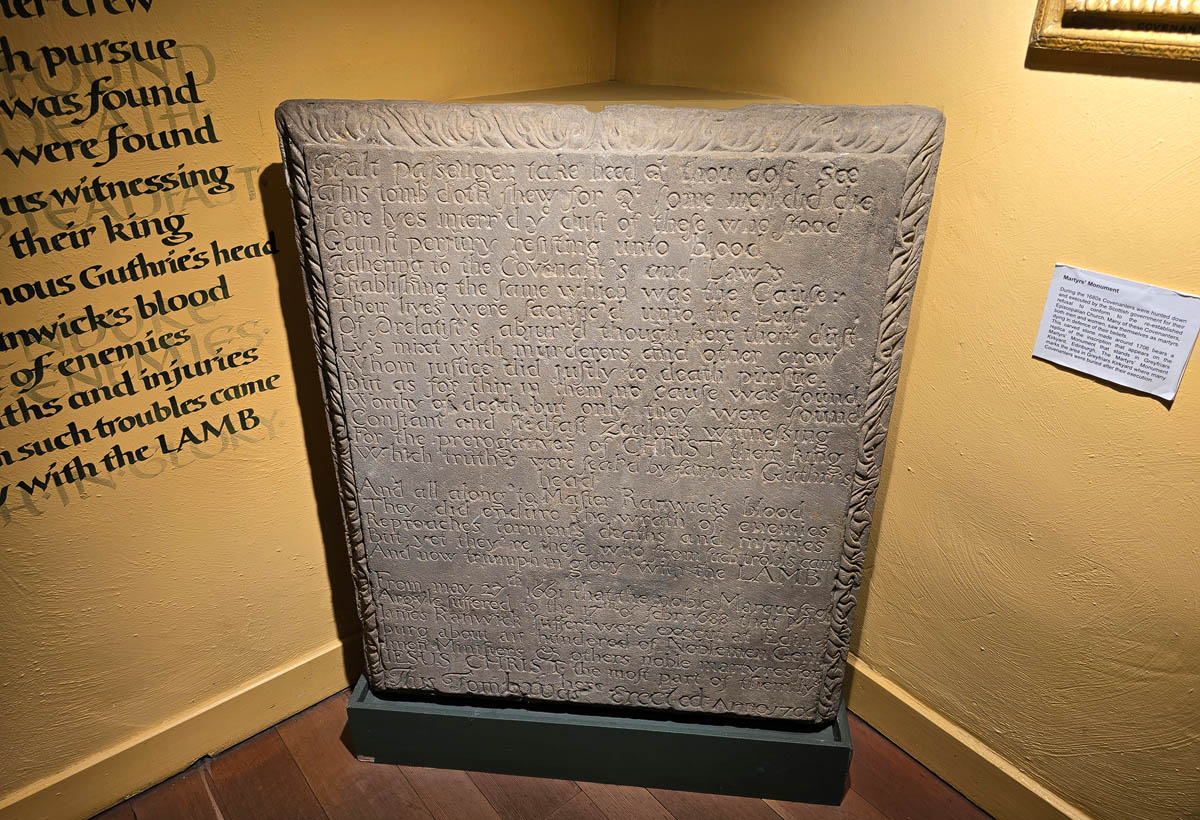 ther crew
th pursue
was found
were found
us witnessing
their king
mous Guthrie's head
anwick's blood
of enemies
ths and injuries
such troubles came
with the LAMB
FOUND
DEATH
STEADFAST
ENEMIES
IN GLORY.
Halt passenger take heed q.t thou dost see
This tomb doth shew for q.t some men did die
Here lyes interr'd y.e dust of these who stood
Gainst perjury resisting unto blood
Adhering to the Covenants and Laws
Establishing the same which was the Cause
Then lives were sacrific'd unto the Lust
Of Prelatist's abjur'd though here their dust
with murderers and other crew
Whom justice did justly to death pursue
But as for this in them no cause was found
Worthy of death but only they were found
Constant and stedfast Zealous witnessing
For the prerogatives of CHRIST their king
Which truths were seal'd by famous Guthrie's
head
And all along to Master Ranwick's blood
They did endure the wrath of enemies
Reproaches torments deaths and injuries
But yet they're these who from such troubls came
And now triumph in glory with the LAMB
From may 27th 1661 that the noble Marquess of
Argyle suffered to the 17th of Febr: 1688 that Mr
James Ranwick suffert were execut at Edin
burg about an hundered of Noblemen Gent
lmen Ministers & others noble martyres for
JESUS CHRIST the most part of them ly
here
This Tomb was Erected Anno 170
COVENAN
Martyrs' Monument
During the 1680s Covenanters were hunted down
and executed by the Scottish government for their
refusal to conform to the re-established
Episcopalian Church. Many of these Covenanters,
both men and women, saw themselves as martyrs
dying in defence of their beliefs.
This carved stone made around 1706 bears a
replica of the inscription that appears on the
Martyrs' Monument that stands in Greyfriars
Kirkyard, Edinburgh. The Martyrs' Monument
marks the area in Greyfriars Kirkyard where many
Covenanters were buried after their execution.